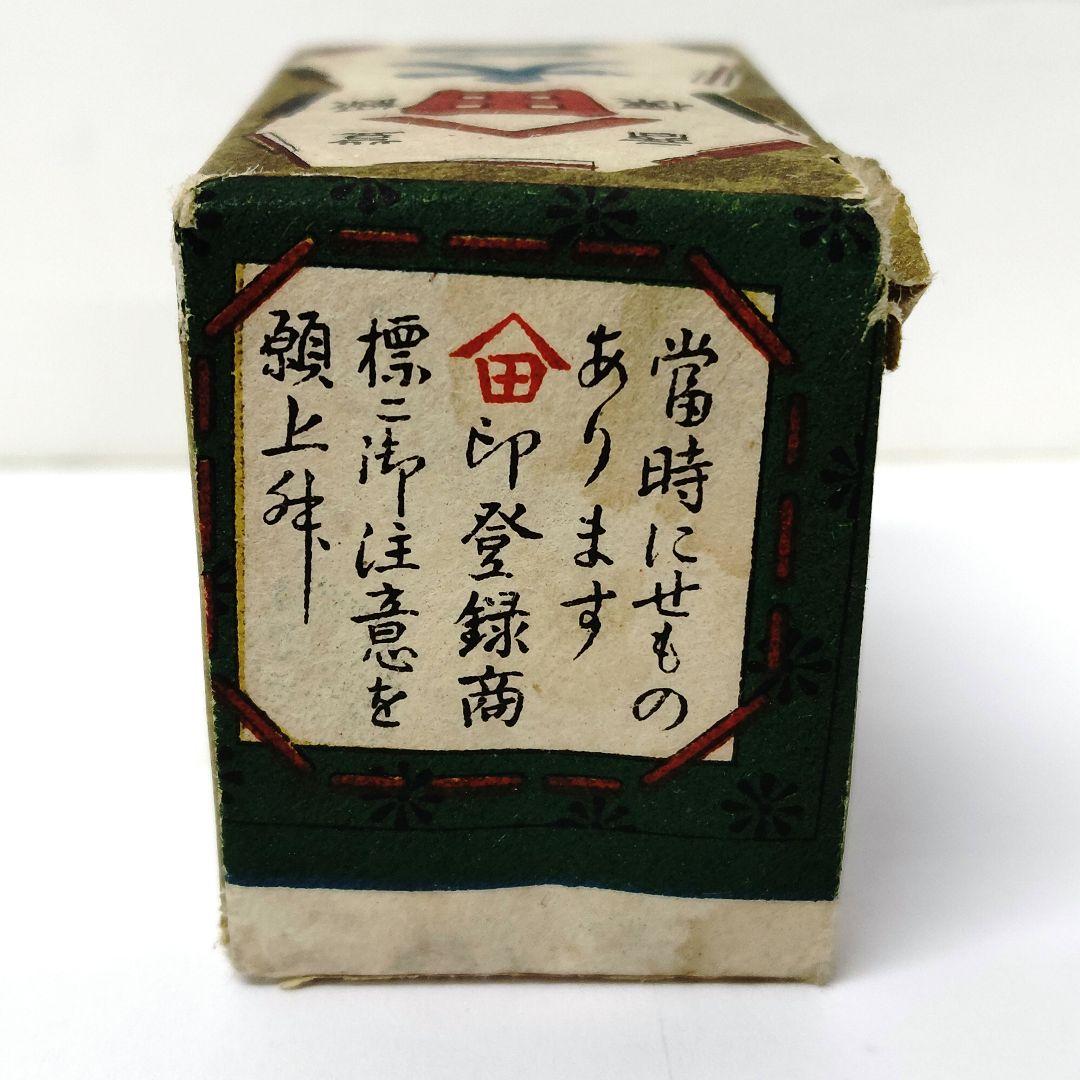 當時にせもの
あります
田印登録商
標ニ御注意を
願上候
登録
商標